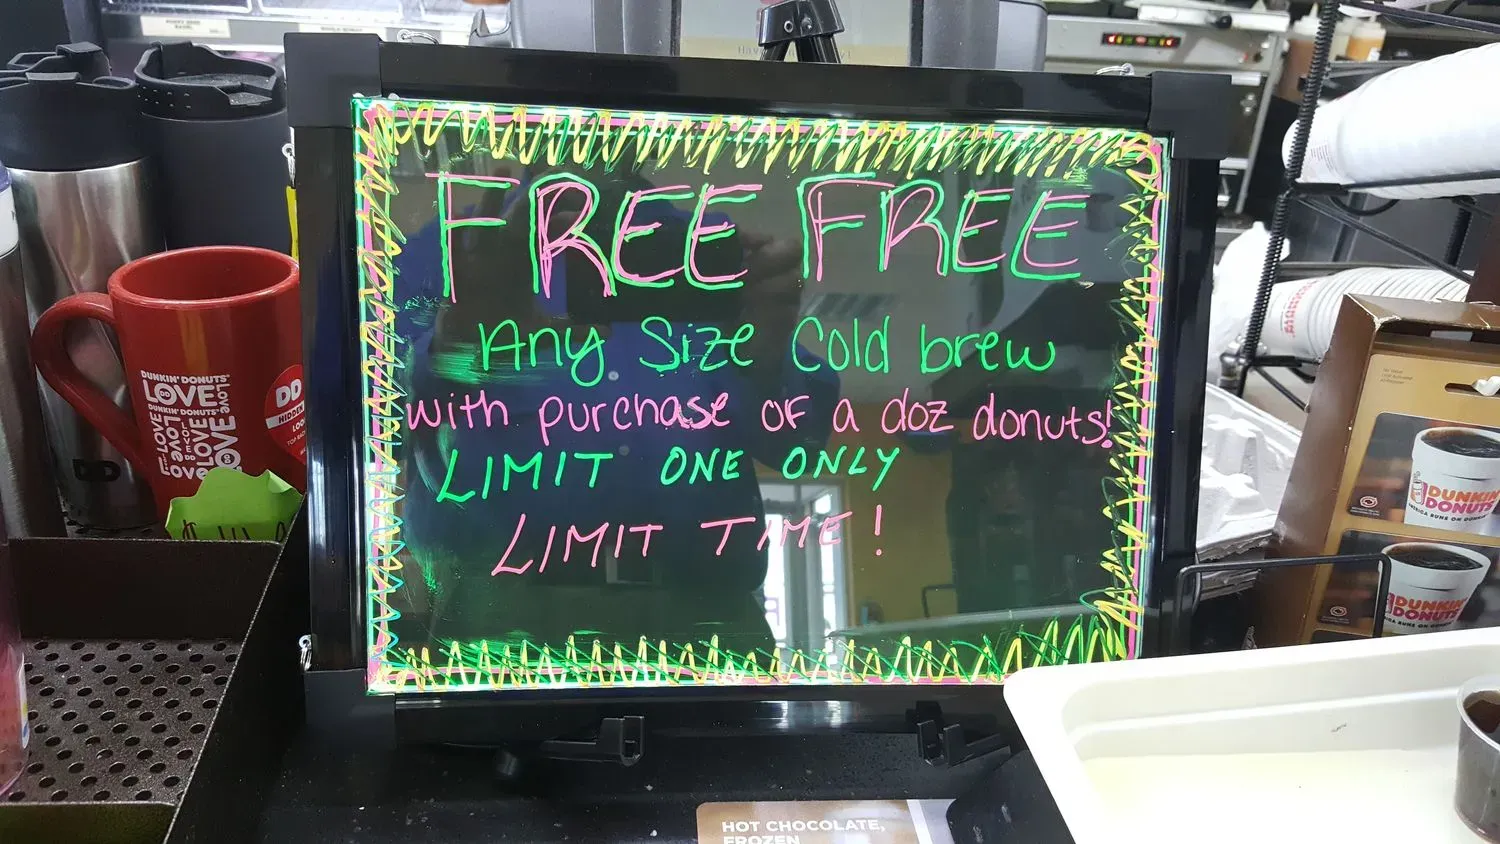 FREE FREE
Any Size Cold brew
with purchase OF a doz donuts!
LIMIT ONE ONLY
LIMIT TIME!
DUNKIN' DONUTS
LOVE
DUNKIN' DONUTS
LOVE
DD
HIDDEN
DD
DUNKIN'
DONUTS
AMERICA RUNS ON DUNKIN'
DUNKIN'
DONUTS
HOT CHOCOLATE,
FROZEN